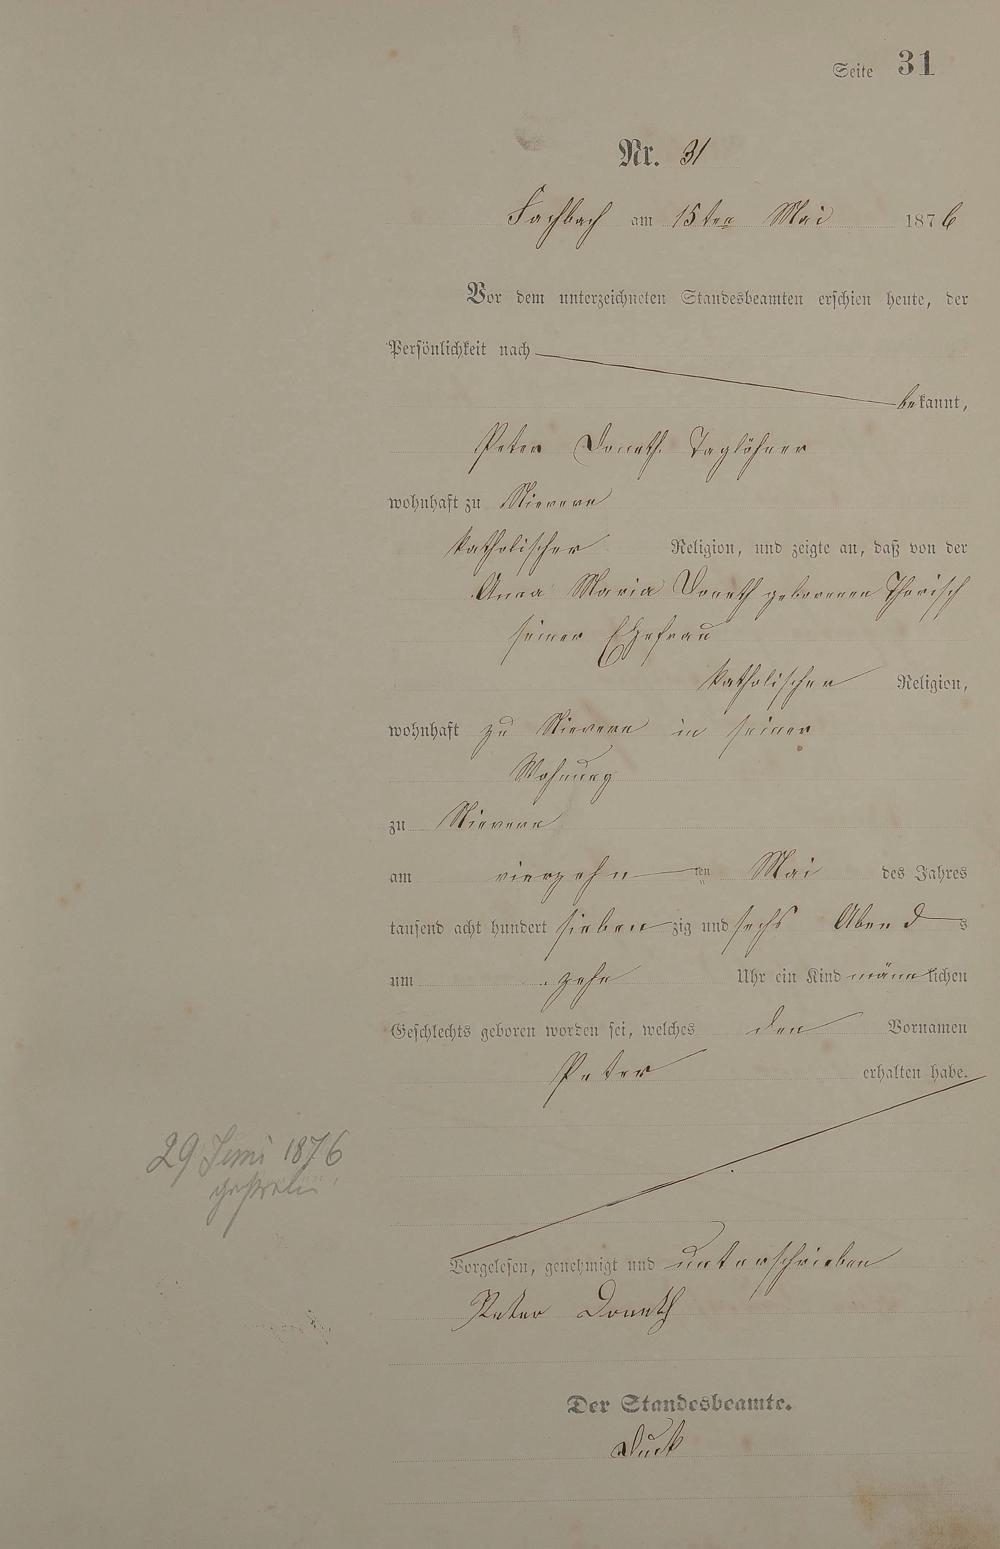 Seite 31
Nr. 31
Fachbach am 15ten Mai 1876
Vor dem unterzeichneten Standesbeamten erschien heute, der
Persönlichkeit nach
bekannt,
Peter Donath Taglöhner
wohnhaft zu Nievern
katholischer Religion, und zeigte an, daß von der
Anna Maria Donath geborenen Thorisch
seiner Ehefrau
katholischer Religion,
wohnhaft zu Nievern in seiner
Wohnung
zu Nievern
am vierzehn ten Mai des Jahres
tausend acht hundert sieben zig und sechs Abend s
um zehn Uhr ein Kind männlichen
Geschlechts geboren worden sei, welches den Vornamen
Peter erhalten habe.
29 Juni 1876
gestorben
Vorgelesen, genehmigt und unterschrieben
Peter Donath
Der Standesbeamte.